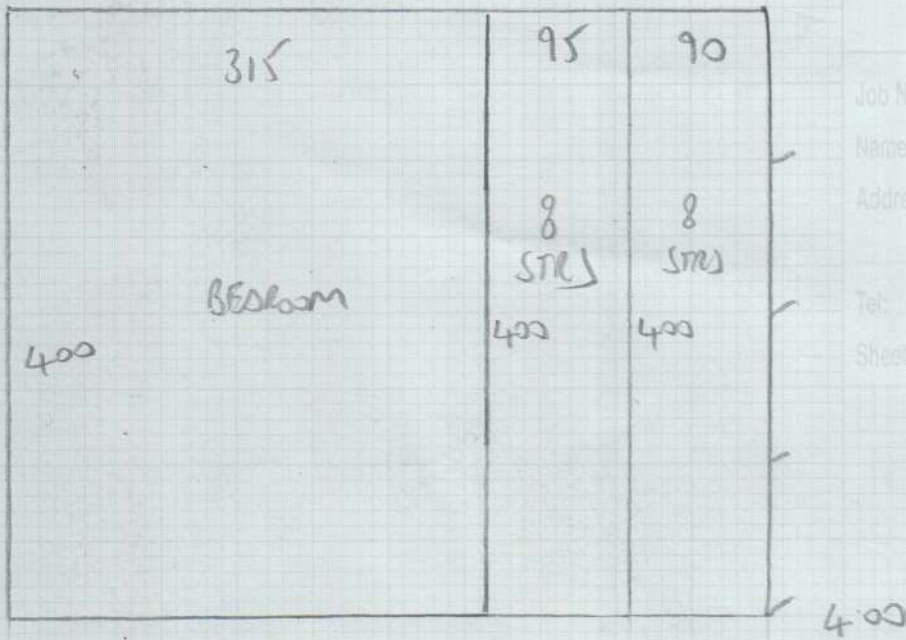 315 95 90
8 8
STRS STRS
BEDROOM
400 400 400
400
Job N
Name
Addre
Tel:
Sheet